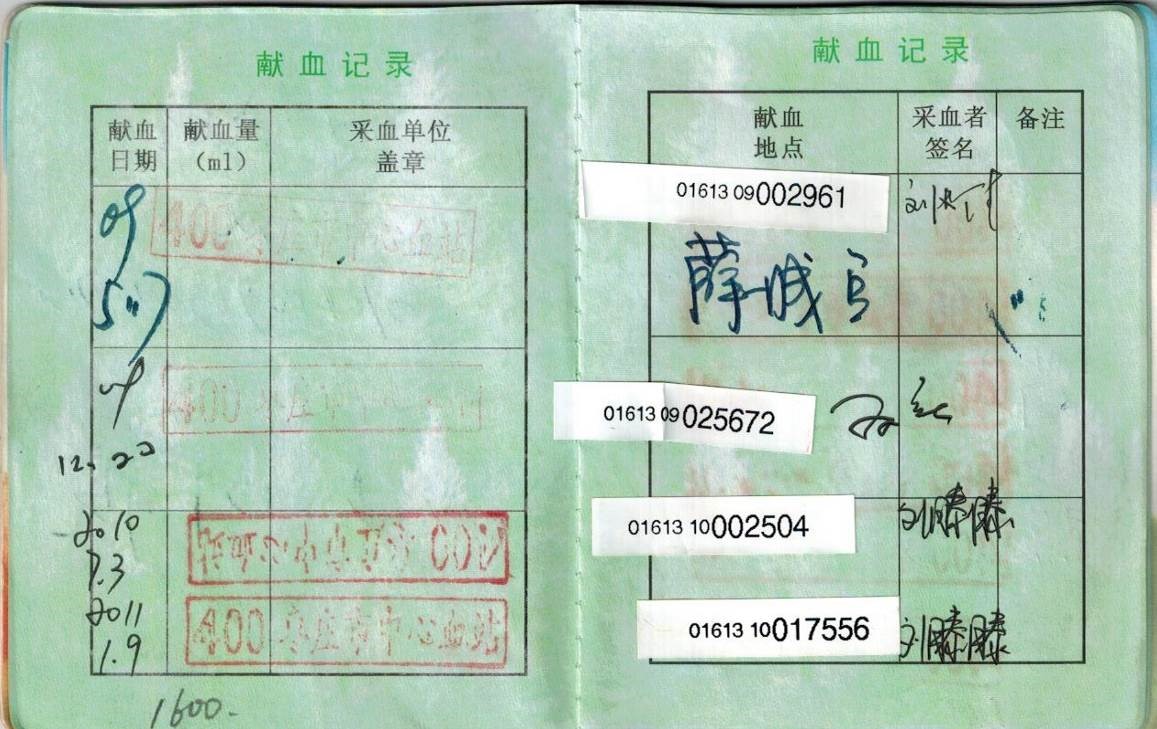 献血记录
献血日期
献血量(ml)
采血单位盖章
09
400
5.17
09
400
12.20
2010
7.3
400 枣庄市中心血站
2011
1.9
400 枣庄市中心血站
1600.
献血记录
献血地点
采血者签名
备注
01613 09002961
薛城
01613 09025672
01613 10002504
刘滕滕
01613 10017556
刘滕滕